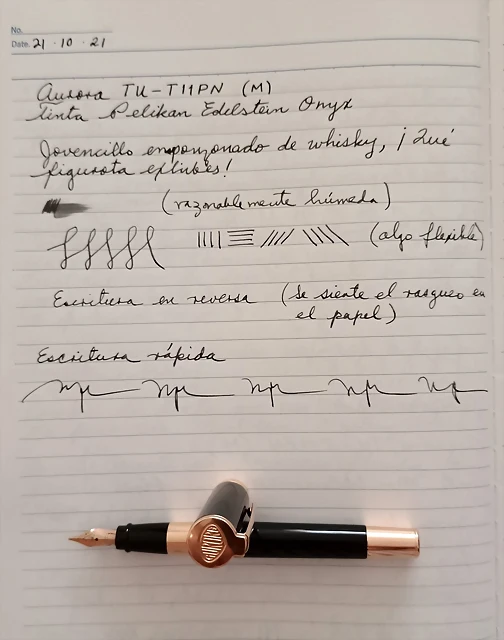 No.
Date. 21 · 10 · 21
Aurora TU-T11PN (M)
tinta Pelikan Edelstein Onyx
Jovencillo emponzoñado de whisky, ¡Qué
figurota exhibes!
(razonablemente húmeda)
(algo flexible)
Escritura en reversa (Se siente el rasgueo en
el papel)
Escritura rápida